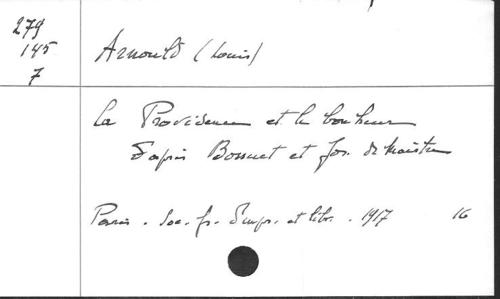 279
145
7
Arnould (Louis)
La Providence et le bonheur
d'après Bossuet et Jos. de Maistre
Paris. Soc. fr. d'impr. et libr. 1917 16